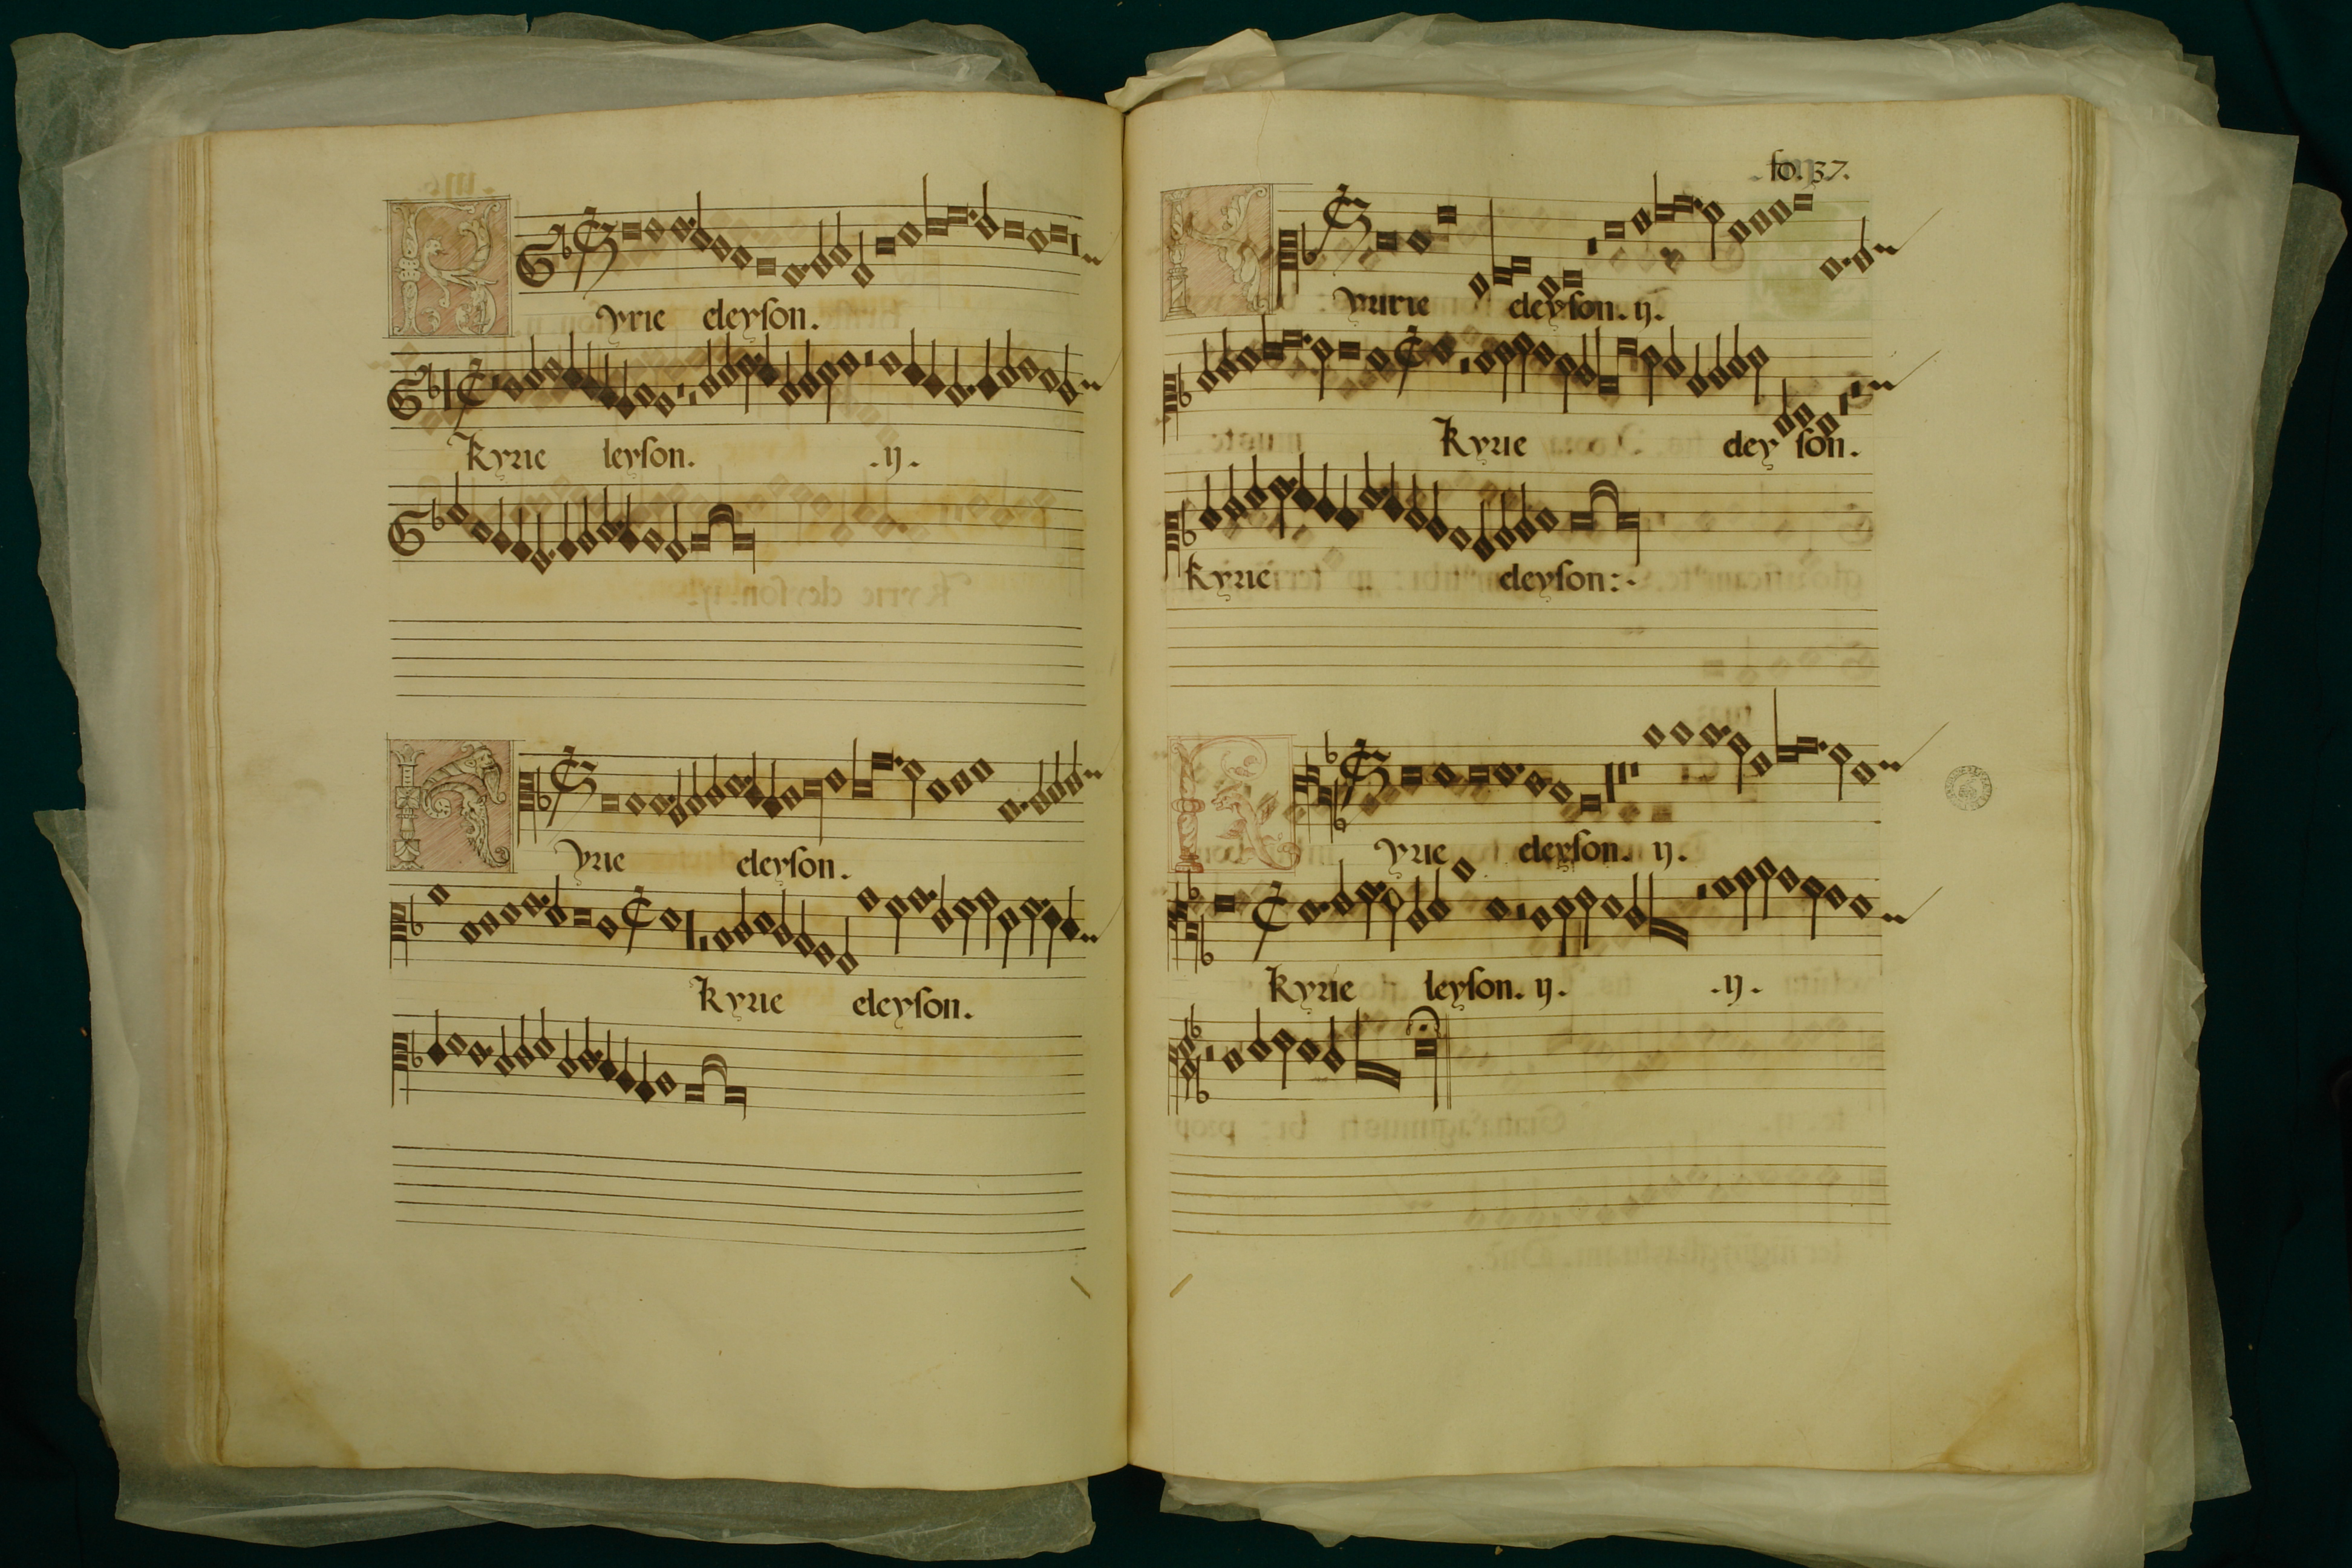 Kyrie eleyson.
Kyrie leyson. .ij.
Kyrie eleyson.
Kyrie eleyson.
fo. 37.
Kyrie eleyson. ij.
Kyrie eleyson.
Kyrie eleyson:
Kyrie eleyson. ij.
Kyrie leyson. ij. .ij.